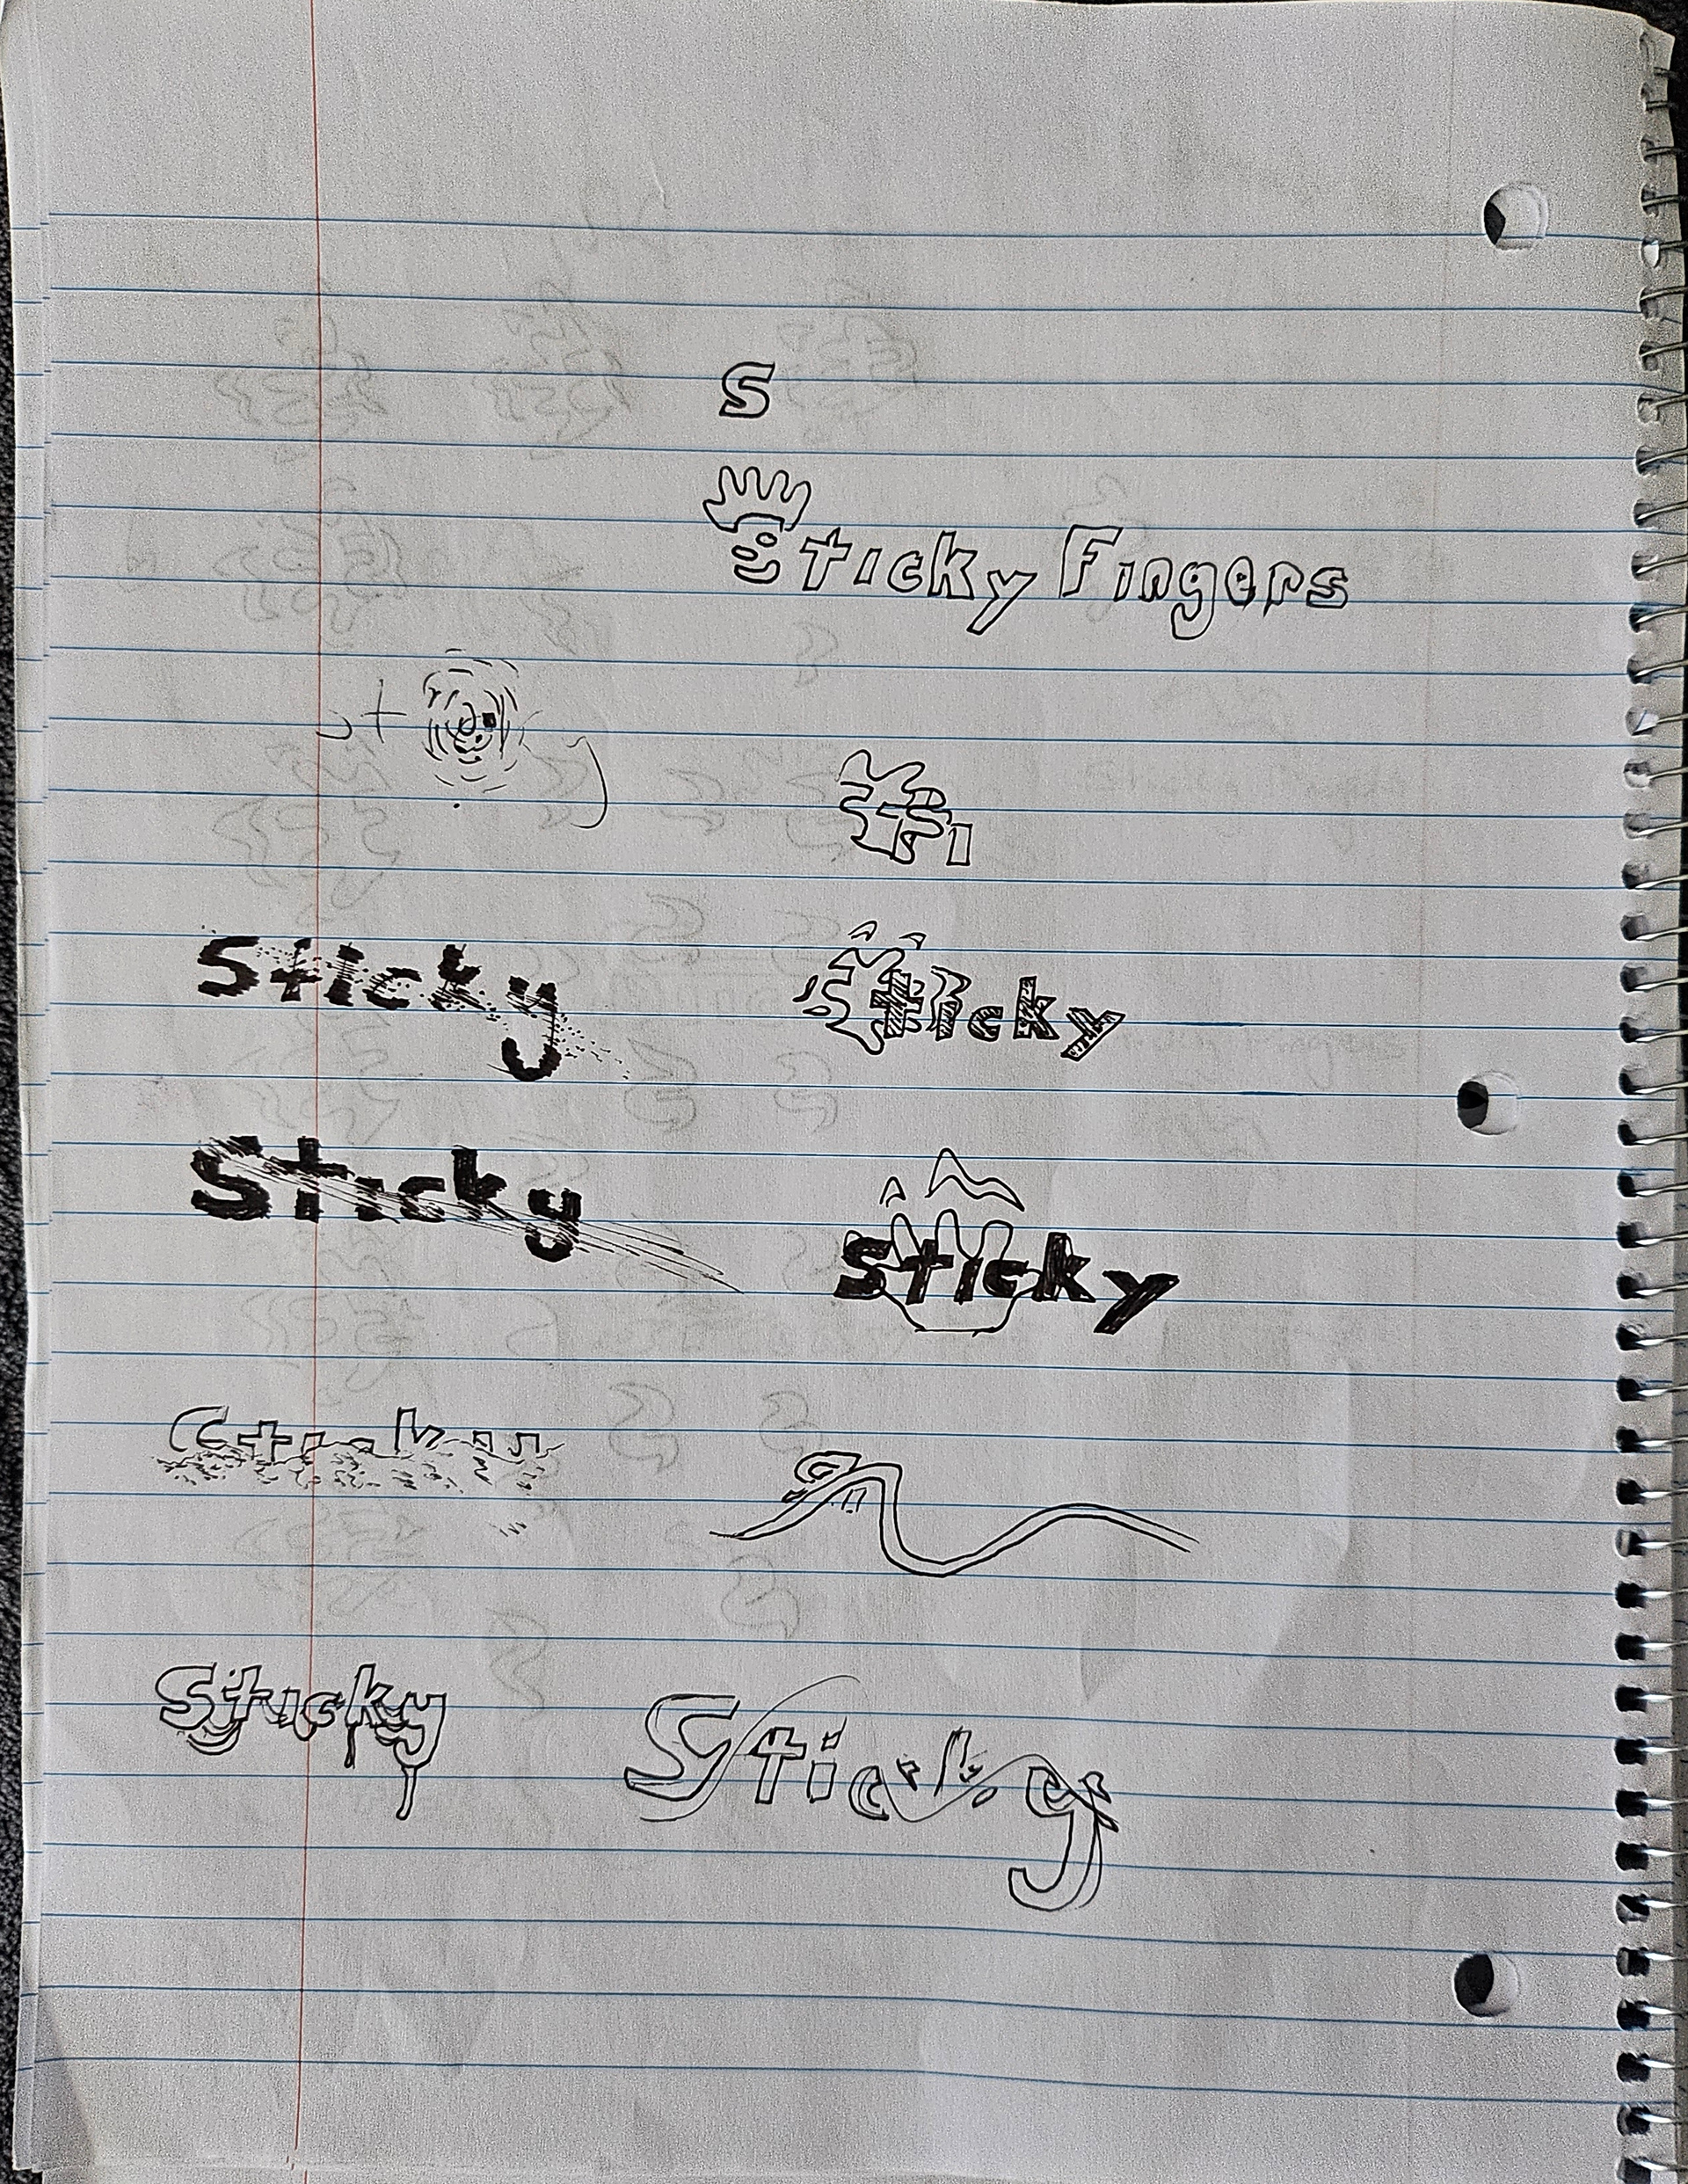 S
Sticky Fingers
st
Sticky
Sticky
Sticky
Sticky
Sticky
Sticky